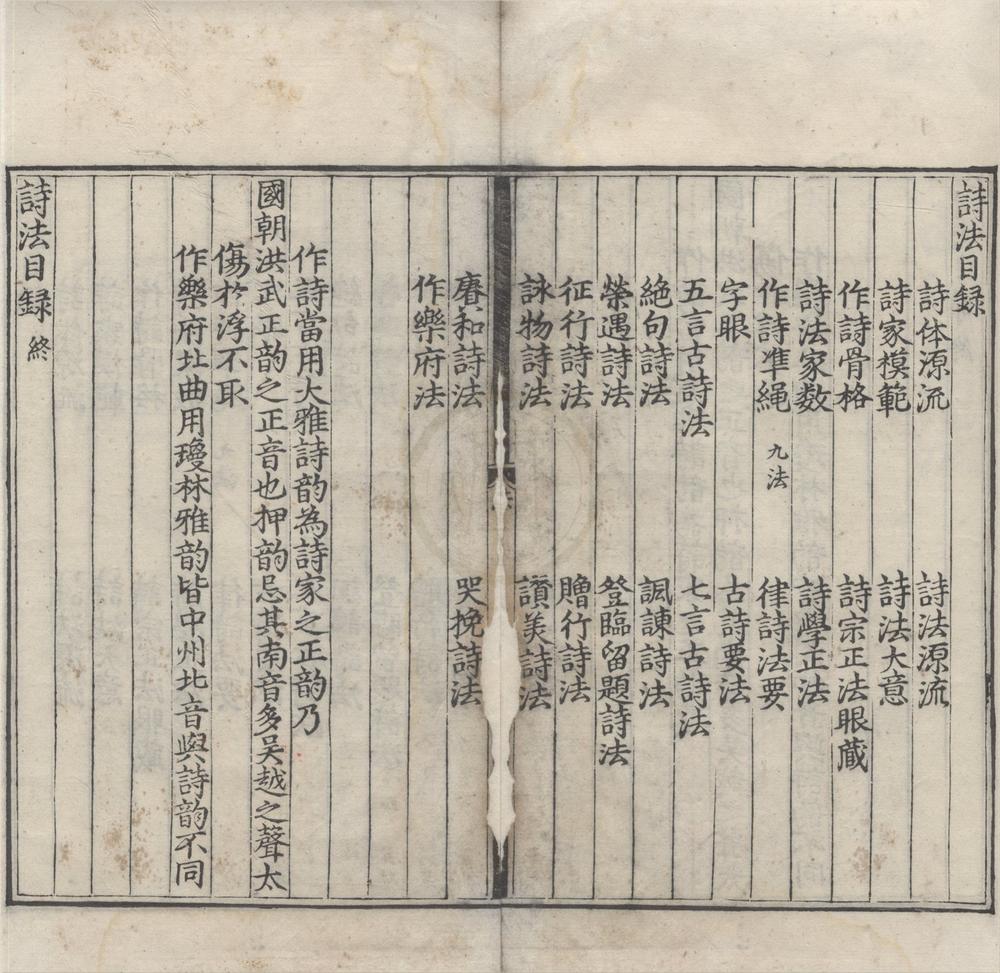 詩法目録
詩体源流　詩法源流
詩家模範　詩法大意
作詩骨格　詩宗正法眼蔵
詩法家数　詩學正法
作詩準繩 九法　律詩法要
字眼　古詩要法
五言古詩法　七言古詩法
絶句詩法　諷諫詩法
榮遇詩法　登臨留題詩法
征行詩法　贈行詩法
詠物詩法　讃美詩法
賡和詩法　哭挽詩法
作樂府法
作詩當用大雅詩韵為詩家之正韵乃
國朝洪武正韵之正音也押韵忌其南音多吴越之聲太
傷於浮不取
作樂府北曲用瓊林雅韵皆中州北音與詩韵不同
詩法目録 終